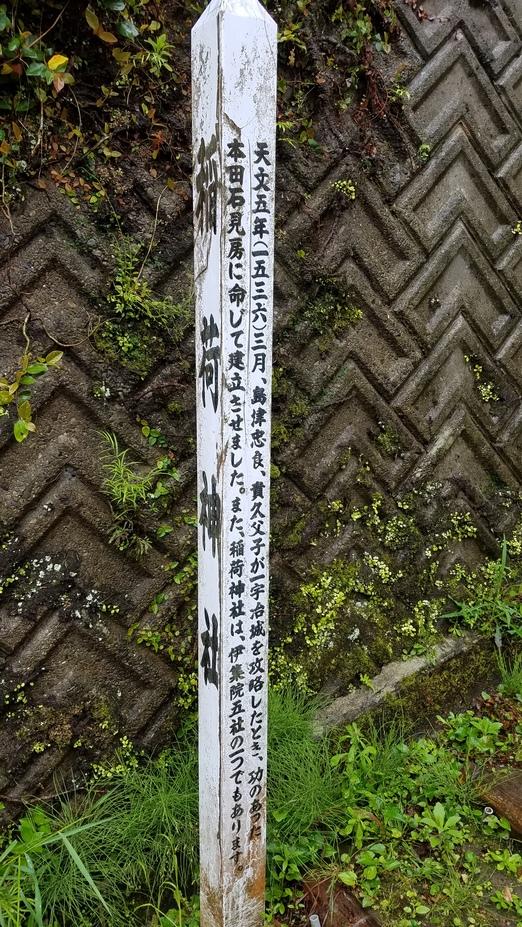 稲荷神社
天文五年(一五三六)三月、島津忠良、貴久父子が一宇治城を攻略したとき、功のあった
本田石見房に命じて建立させました。また、稲荷神社は、伊集院五社の一つでもあります